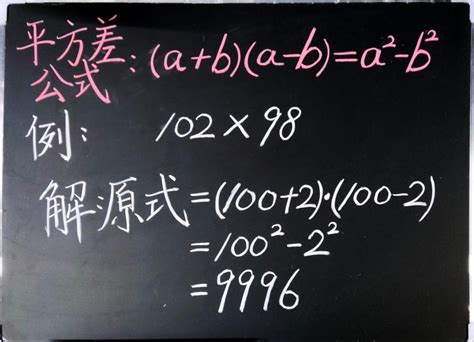 平方差公式: (a+b)(a-b)=a²-b²
例: 102×98
解源式=(100+2)·(100-2)
=100²-2²
=9996